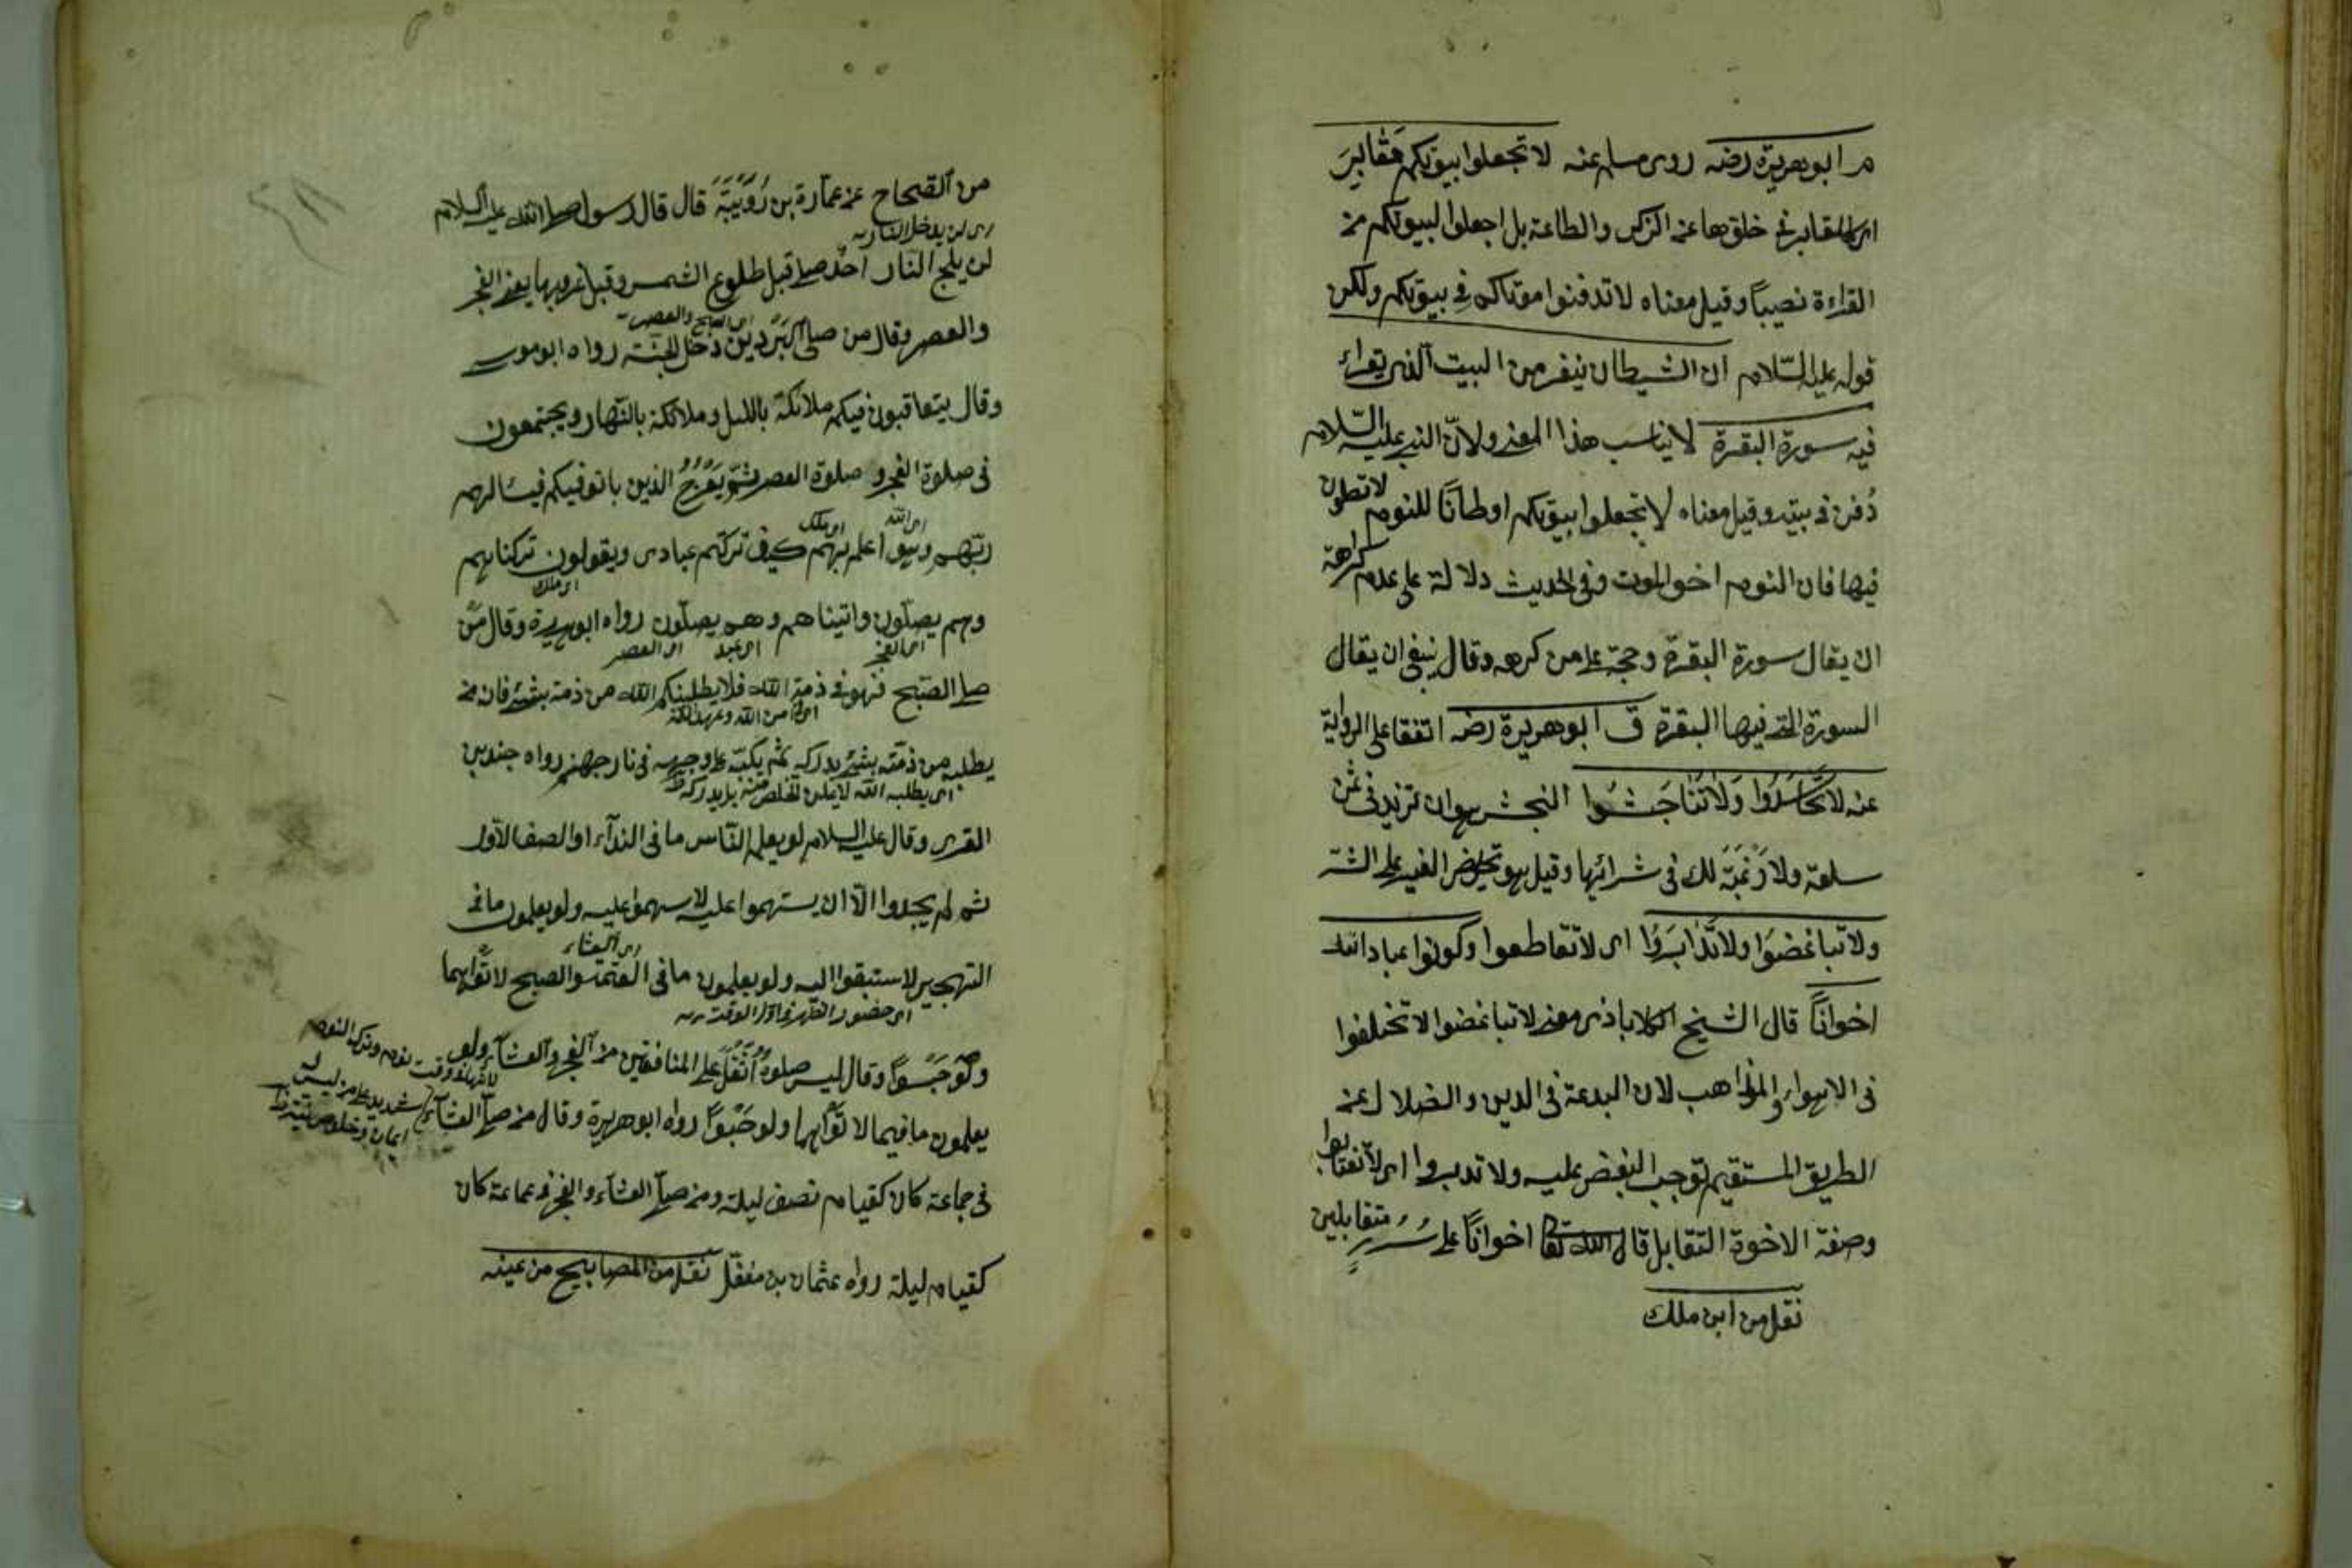 م ابو هريرة رضه روى مسلم عنه لا تجعلوا بيوتكم مقابر
اى كالمقابر فى خلوها عن الذكر والطاعة بل اجعلوا لبيوتكم من
القراءة نصيباً وقيل معناه لا تدفنوا موتاكم فى بيوتكم ولكن
قوله عليه السّلام ان الشيطان ينفر من البيت الذى يقراء
فيه سورة البقرة لا يناسب هذا المعنى ولانّ النبى عليه السّلام
دُفن فى بيته وقيل معناه لا تجعلوا بيوتكم اوطاناً للنوم لا تصلون
فيها فان النوم اخو الموت وفى الحديث دلالة على عدم كراهة
ان يقال سورة البقرة وحجة على من كرهه وقال ينبغى ان يقال
السورة التى فيها البقرة ق ابو هريرة رضه اتفقا على الرواية
عنه لا تَحَاسَدُوا وَلَا تَنَاجَشُوا النجش هو ان تزيد فى ثمن
سلعة ولا رَغْبَة لك فى شرائها وقيل هو تحريض الغير على الشر
ولا تباغضَوا ولا تَدَابَرُوا اى لا تقاطعوا وكونوا عباد الله
اخواناً قال الشيخ الكلاباذى معنى لا تباغضوا لا تختلفوا
فى الاهواء والمذاهب لان البدعة فى الدين والضلال عن
الطريق المستقيم توجب البغض عليه ولا تدابروا اى لا تغتابوا
وصفة الاخوة التقابل قال الله تعا اخواناً على سُرُرٍ متقابلين
نقل من ابن ملك
من الصّحاح عن عمارة بن رُوَيْبَةَ قال قال رسول صلى الله عليه السلام
اى لن يدخل النار
لن يلج النّار احد صلى قبل طلوع الشمس وقبل غروبها يعنى الفجر
اى الصبح والعصر
والعصر وقال من صلى البَرْدَيْن دخل الجنّة رواه ابو موسى
وقال يتعاقبون فيكم ملائكة بالليل وملائكة بالنّهار ويجتمعون
فى صلوة الفجر و صلوة العصر ثمّ يَعْرُجُ الذين باتوا فيكم فيسألهم
اى الله اى ملك
ربّهم وهو اعلم بهم كيف تركتم عبادى ويقولون تركناهم
اى ملك
وهم يصلّون واتيناهم وهم يصلّون رواه ابو هريرة وقال مَن
اى الفجر اى عبد اى العصر
صلى الصّبح فهو فى ذمّة الله فلا يطلبنكم الله من ذمته بشئ فان من
اى امن الله وعهد الله
يطلبه من ذمّته بشئ يدركه ثم يكبّه على وجهه فى نار جهنم رواه جندب
القسرى وقال عليه السلام لو يعلم النّاس ما فى الندآء او الصف الاوّل
ثم لم يجدوا الّا ان يستهموا عليه لاستهموا عليه ولو يعلمون ما فى
اى العشاء
التهجير لاستبقوا اليه ولو يعلمون ما فى العتمة والصبح لاتَوْهما
اى حضور الظهر فى اوّل الوقت
ولو حَبْواً وقال ليس صلوةٌ اَثْقَلَ على المنافقين من الفجر والعشآء ولو
يعلمون ما فيهما لاتَوْهما ولو حَبْواً رواه ابو هريرة وقال من صلى العشآء
فى جماعة كان كقيام نصف ليلة ومن صلى العشآء والفجر فى جماعة كان
كقيام ليلة رواه عثمان بن مغفل نقل من المصابيح من عينه
لانهما وقت نوم وترك النوم
شديد على من ليس له